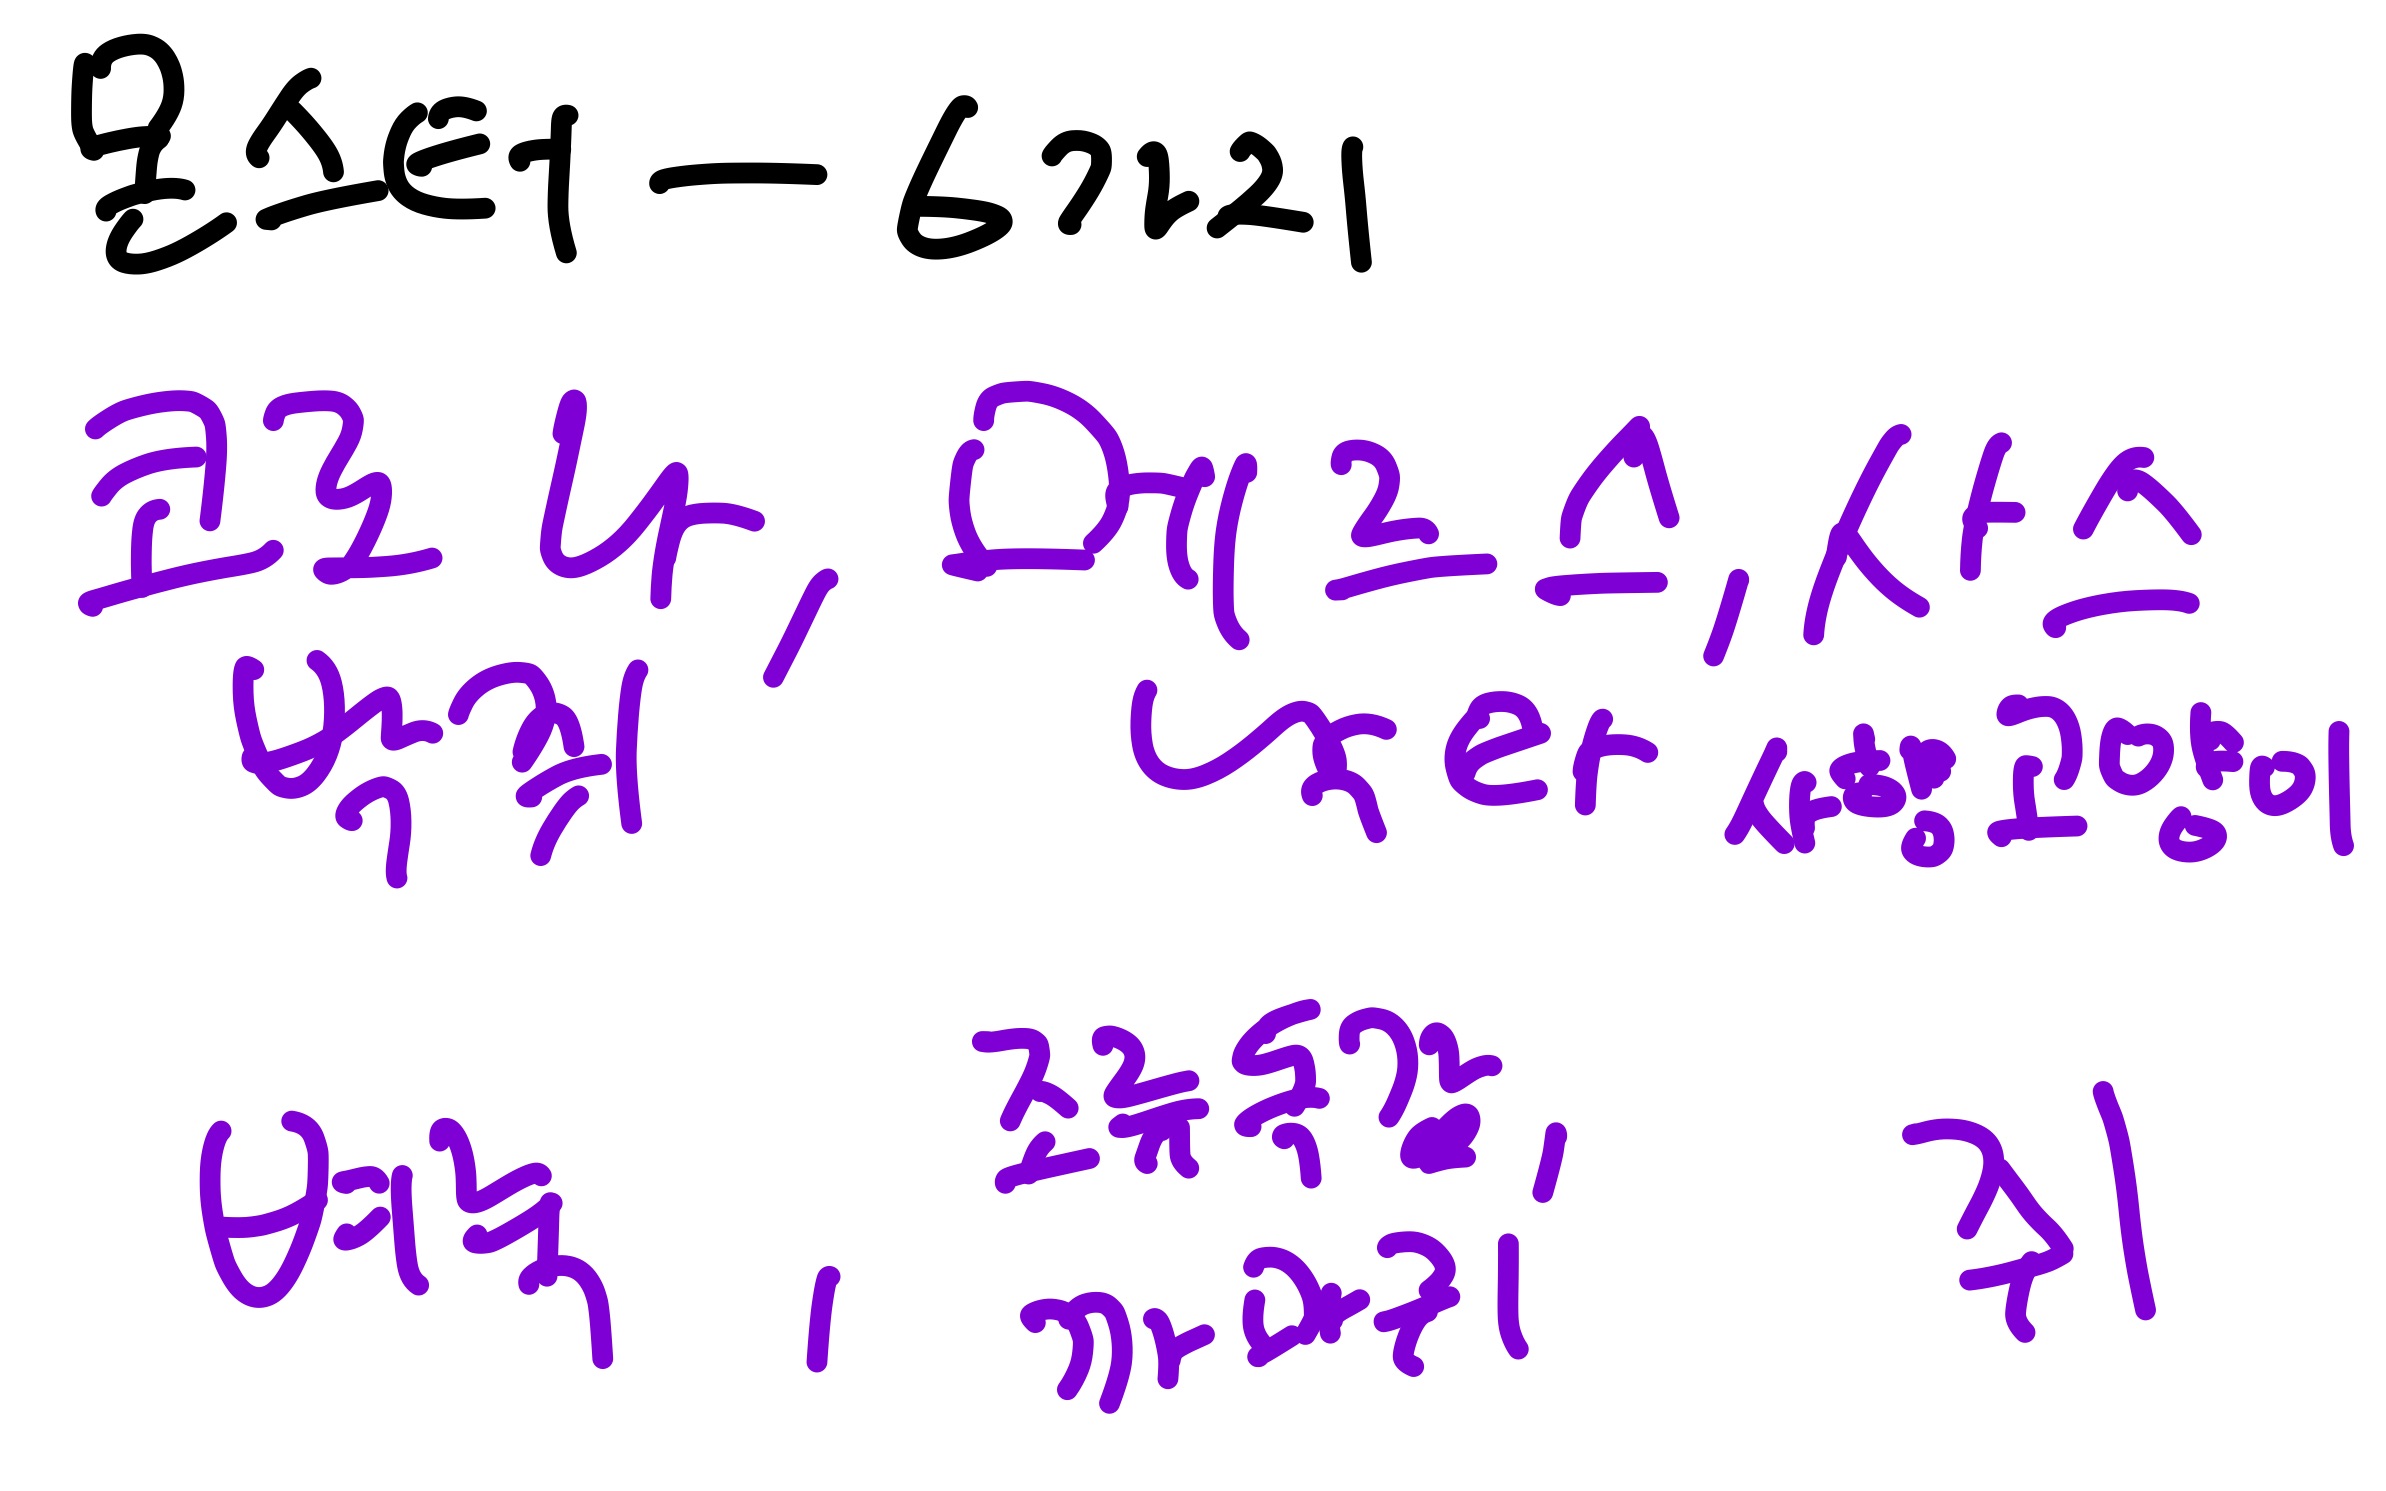 몬스터 — 6가지
코로나, 메르스, 사스
박쥐 낙타 사향고양이
조류독감, 쥐
까마귀